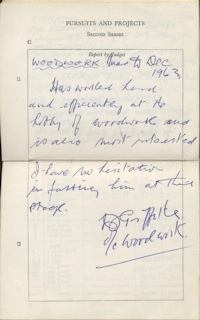 PURSUITS AND PROJECTS
SECOND SERIES
C
Report by Judges
WOODWORK Mar to Dec
1963
Has worked hard
and efficiently at the
hobby of woodwork and
is also most interested
I have no hesitation
in passing him at this
stage.
D Griffiths
i/c Woodwork.